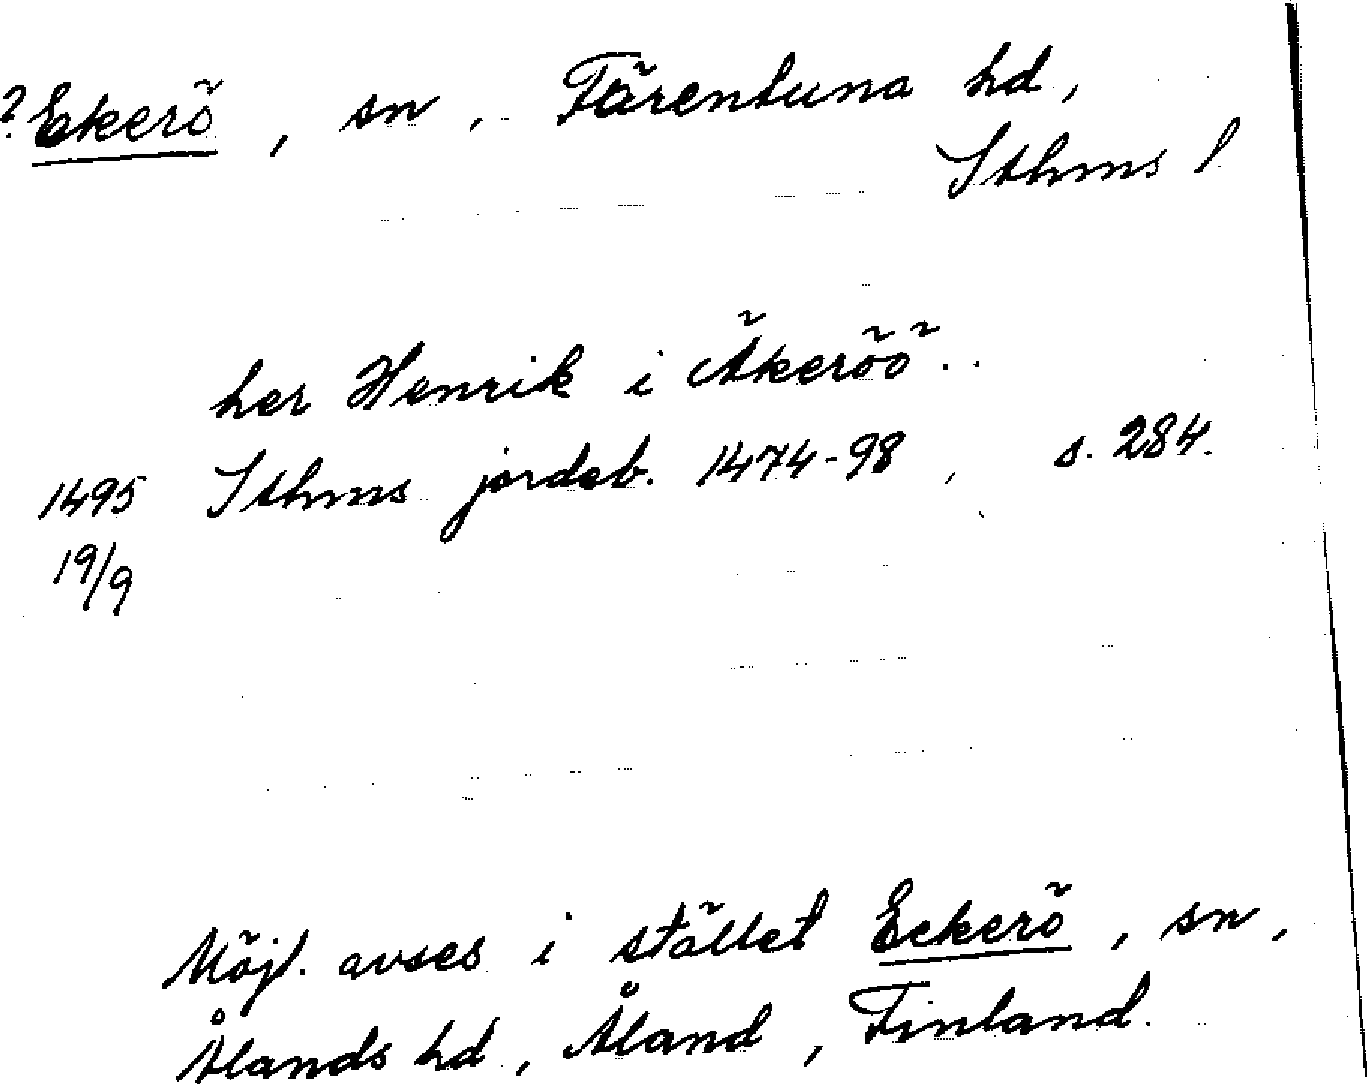 ?Ekerö, sn, Färentuna hd,
Sthms l
her Henrik i Äkeröö..
1495 Sthms jordeb. 1474-98, s. 284.
19/9
Möjl. avses i stället Eckerö, sn,
Ålands hd, Åland, Finland.